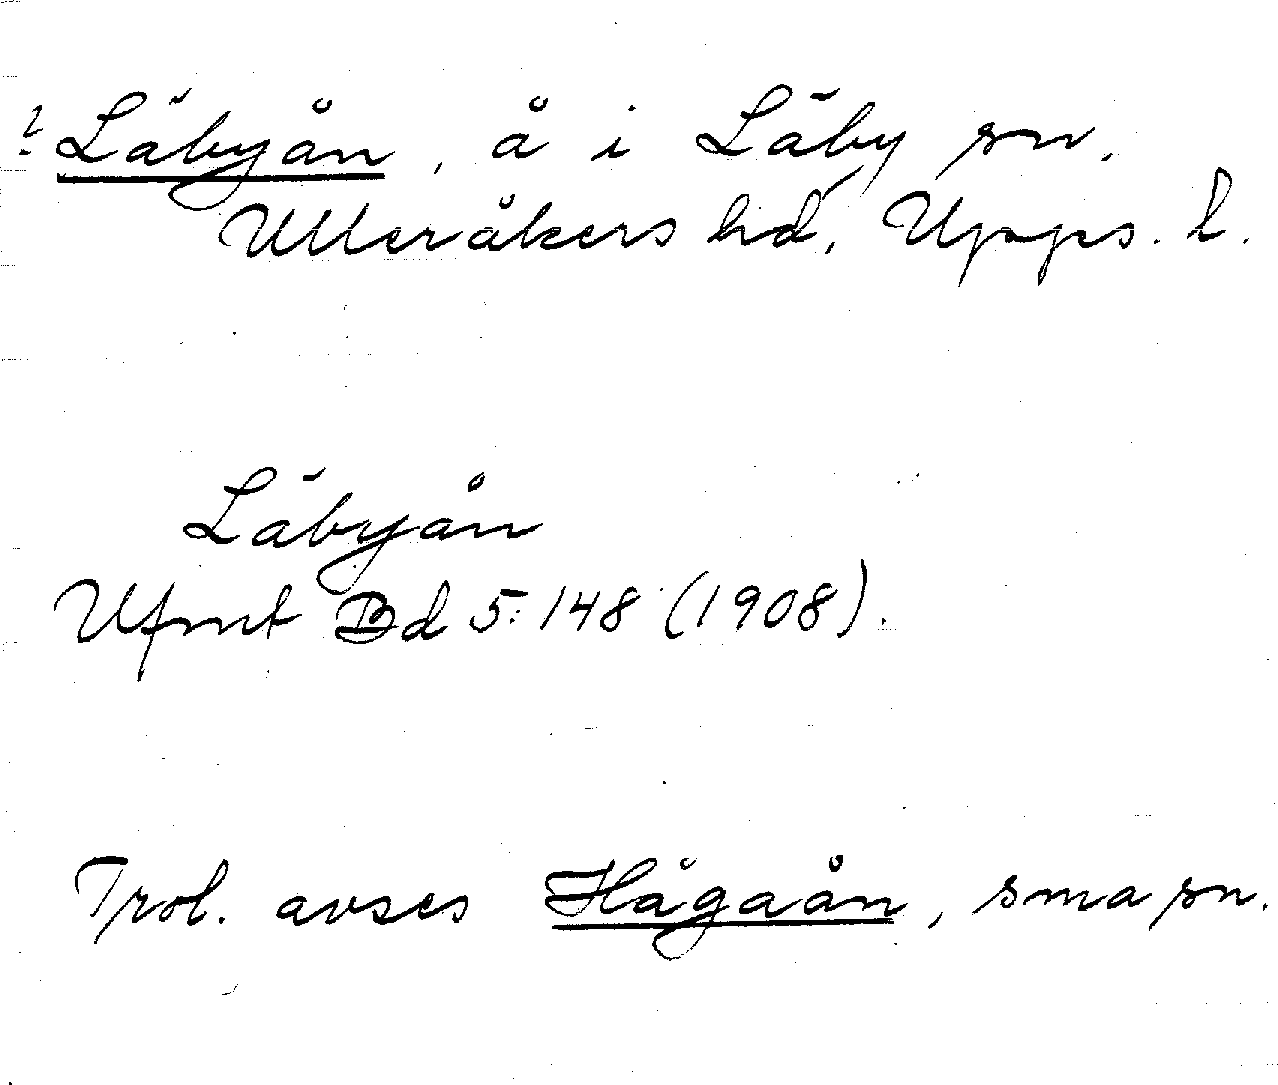 ? Läbyån, å i Läby sn,
Ulleråkers hd, Upps. l.
Läbyån
Ufmt Bd 5:148 (1908).
Trol. avses Hågaån, sma sn.